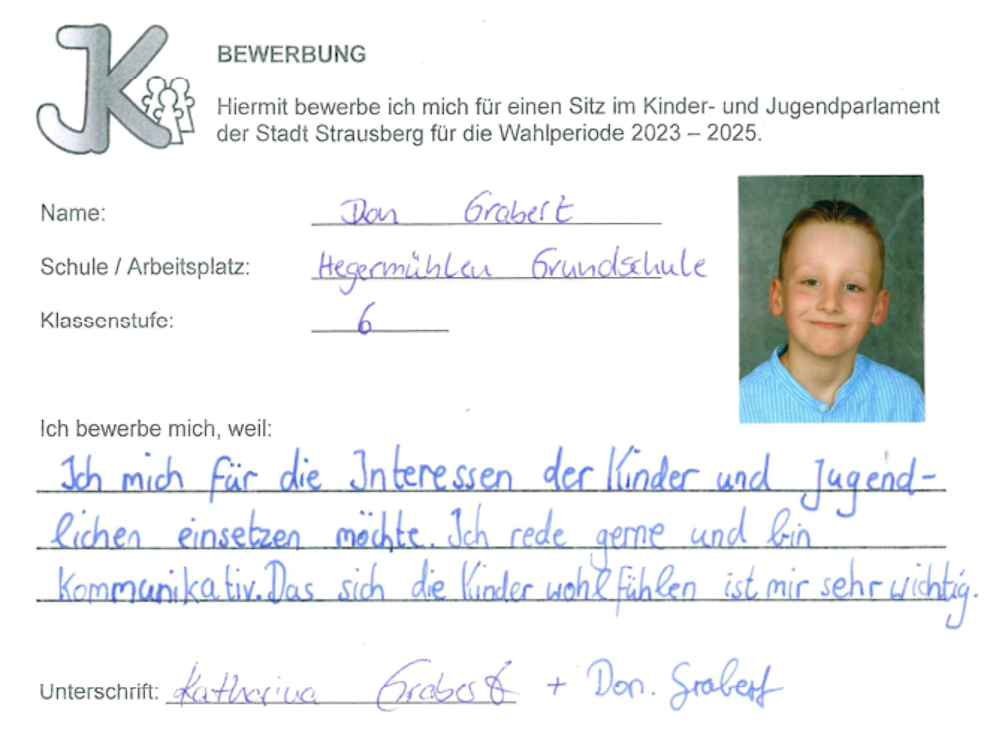 JK
BEWERBUNG
Hiermit bewerbe ich mich für einen Sitz im Kinder- und Jugendparlament
der Stadt Strausberg für die Wahlperiode 2023 – 2025.
Name: Don Grabert
Schule / Arbeitsplatz: Hegermühlen Grundschule
Klassenstufe: 6
Ich bewerbe mich, weil:
Ich mich für die Interessen der Kinder und Jugend-
lichen einsetzen möchte. Ich rede gerne und bin
kommunikativ. Das sich die Kinder wohl fühlen ist mir sehr wichtig.
Unterschrift: Katharina Grabert + Don. Grabert